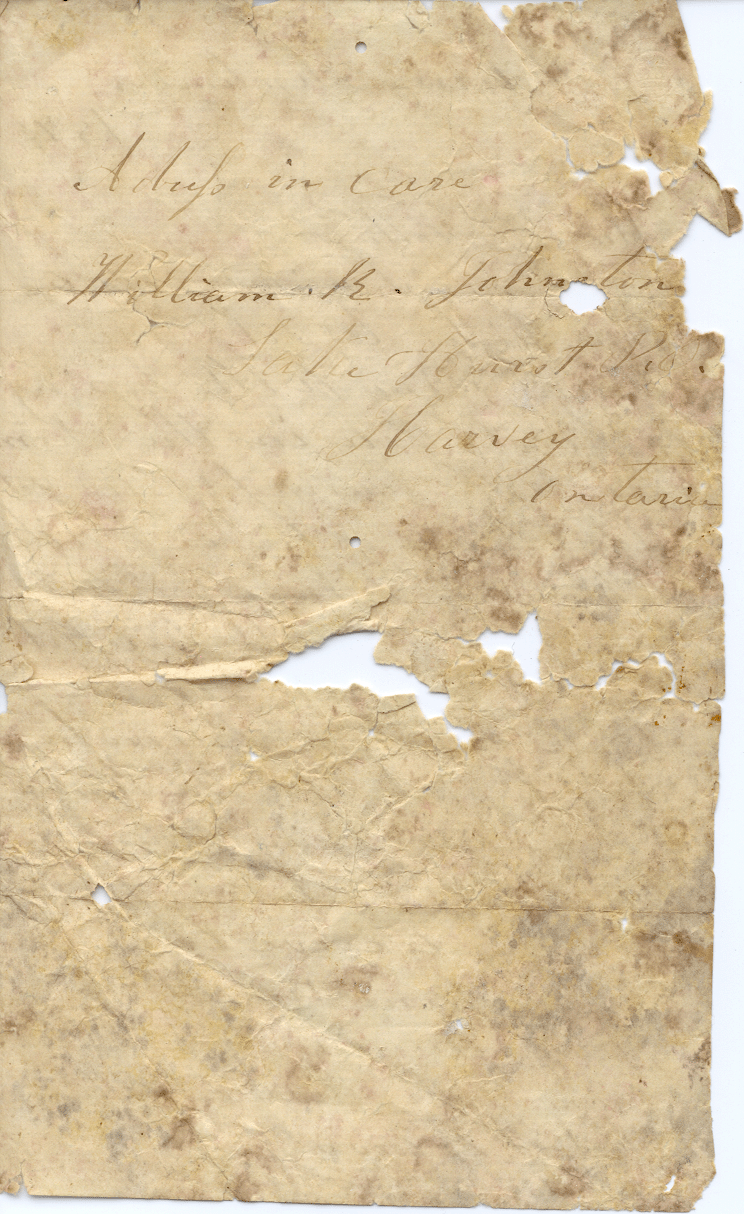 Adress in care
William R. Johnston
Lake Hurst P.O.
Harvey
Ontario